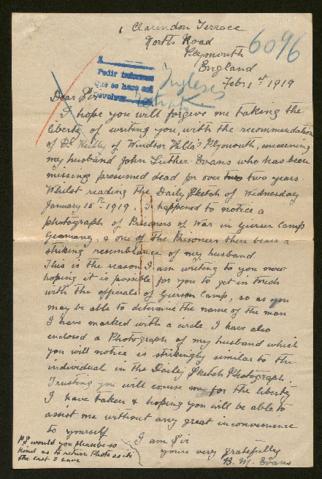 1 Clarendon Terrace
North Road
Plymouth
England
Feby 1st 1919
6096
Pedir informes
Ingleses
Dear Sir
I hope you will forgive me taking the
liberty of writing you, with the recommendation
of Windsor Villas Plymouth, concerning
my husband John Luther Evans who has been
missing presumed dead for over two years
Whilst reading the Daily Sketch of Wednesday
January 15th 1919. I happened to notice a
photograph of Prisoners of War in Camp
Germany, & one of the Prisoners there bears a
striking resemblance of my husband
This is the reason I am writing to you now
hoping it is possible for you to get in touch
with the officials of Camp, so as you
may be able to determine the name of the man
I have marked with a circle. I have also
enclosed a Photograph of my husband which
you will notice is strikingly similar to the
individual in the Daily Sketch Photograph.
Trusting you will excuse me for the liberty
I have taken & hoping you will be able to
assist me without any great inconvenience
to yourself
I am Sir
yours very gratefully
B. M. Evans
P.S. would you please be so
kind as to return Photo as its
the last I have